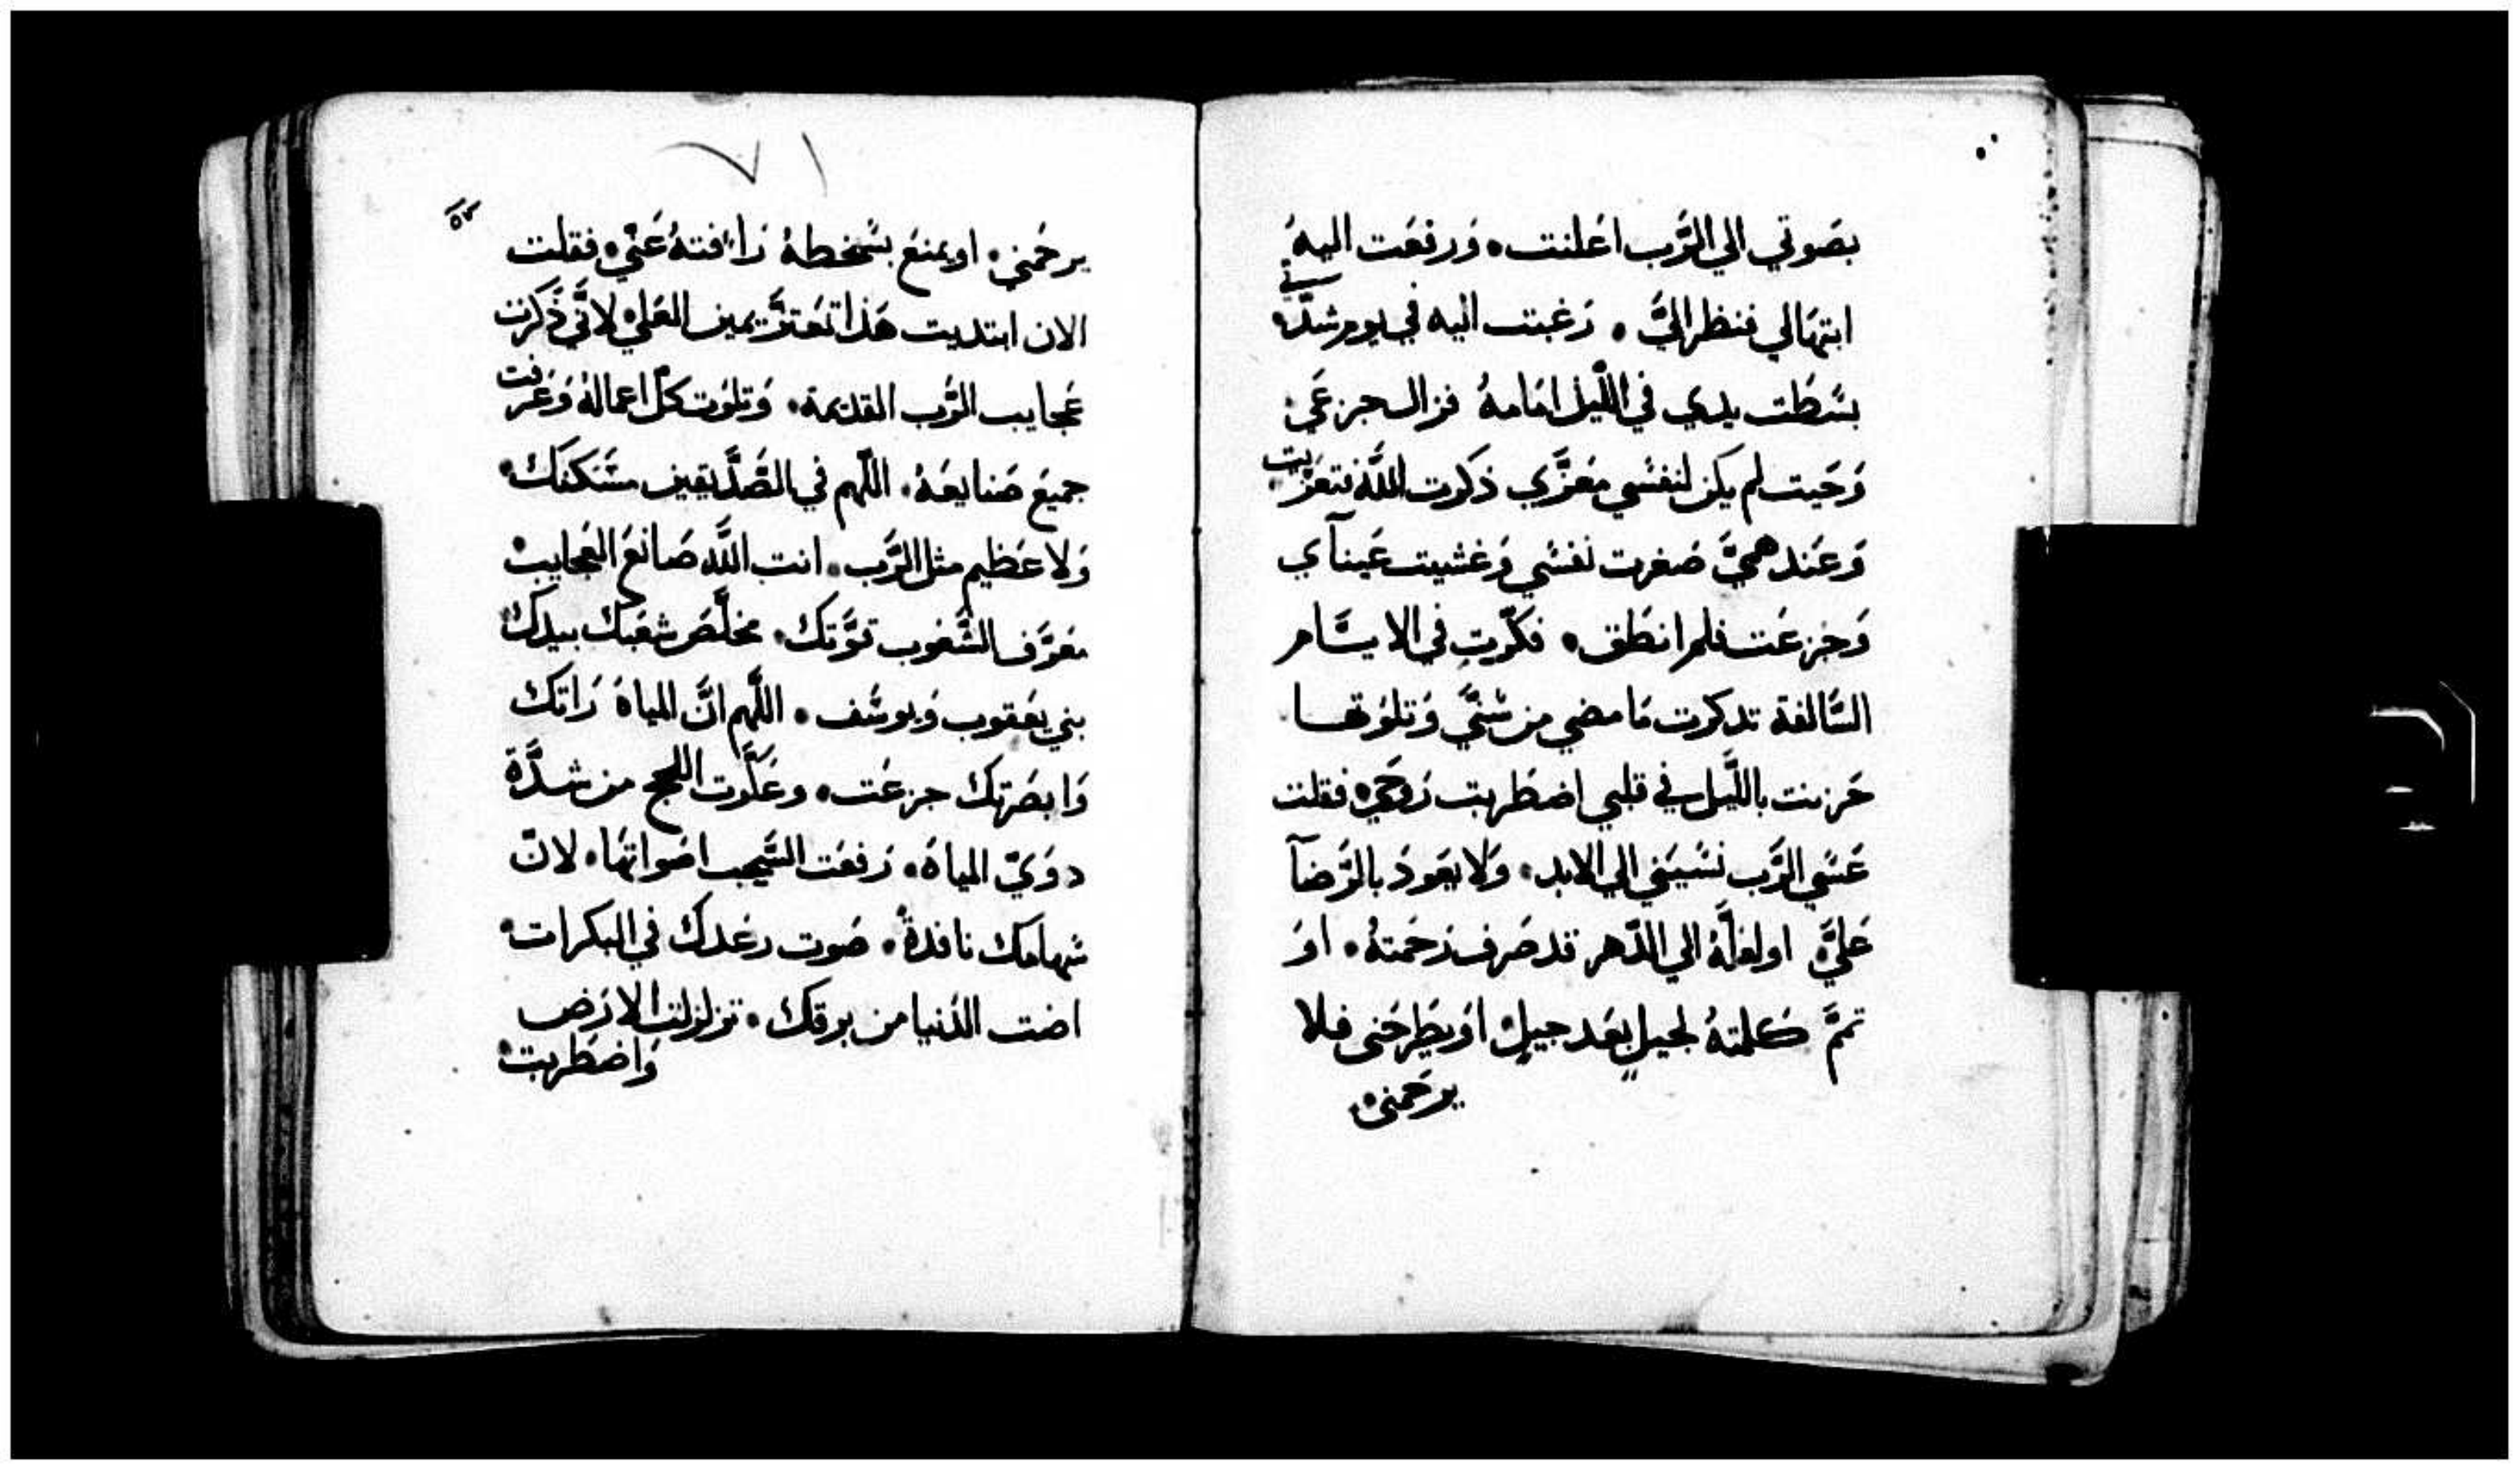 بصَوتي الي الرَّب اعَلنت٠ وَرفعَت اليهُ
ابتهَالي فنظر اليَّ ٠ رَغبت اليه في يوم شدَّتي
بسَطت يدي في اللّيل امَامهُ فزال جزعَي٠
وَحَيت لم يكن لنفسَي مَعزَّي ذكرت اللَّه فتعزَّيت٠
وَعَند همّيَّ صَغرت نفسَي وَغشيت عَينآي
وَجزعَت فلم انطَق٠ فكَّرت في الايَّام
السَّالفة تدكرت مَا مضي من سَنيَّ وَتلوَتها
حَزنت باللَّيل في قلبي اضطَربت رَوحَي٠ فقلت
عَسَي الرَّب نسَيَني الي الابد٠ وَلا يعَودَ بالرَّضآ
عَليَّ اولعَلَّهُ الي الدّهر قد صَرف رَحَمتهُ٠ اوَ
تمَّ كلمتهُ لجيل بعَد جيلٍ اوَ يطَرحَني فلا
يرحَمني٠
٧١
يرحَمني٠ او يمنعَ بسَخطهُ رَاءفتهُ عَنّي٠ فقلت
الان ابتديت هَذا تعَتزَّ يمين العَلي٠ لانَّي ذَكرت
عَجايب الرَّب القديمة٠ وَتلوَت كلَّ اعمالهُ وَعَرفت
جميعَ صَنايعَهُ٠ اللَّهم في الصَّدَّيقين مسَكنك٠
وَلا عَظيم مثل الرَّب٠ انت اللَّه صَانعَ العَجايب٠
معَرَّف الشَّعَوب قوَّتك٠ مخلَّصَ شعَبك بيدك
بني يعَقوب وَيوسَف ٠ اللَّهم انَّ المياهَ رَاتك
وَابصَرتك جزعَت٠ وعَلَّوت اللجج من شدَّة
دوَيّ المياهَ٠ رَفعَت السَّحَب اصَواتهَا٠ لانّ
سَهامَك نافدةً٠ صَوت رعَدك في البكرات٠
اضت الدَنيا من برقك٠ تزلزلت الارَض
وَاضطَربت٠